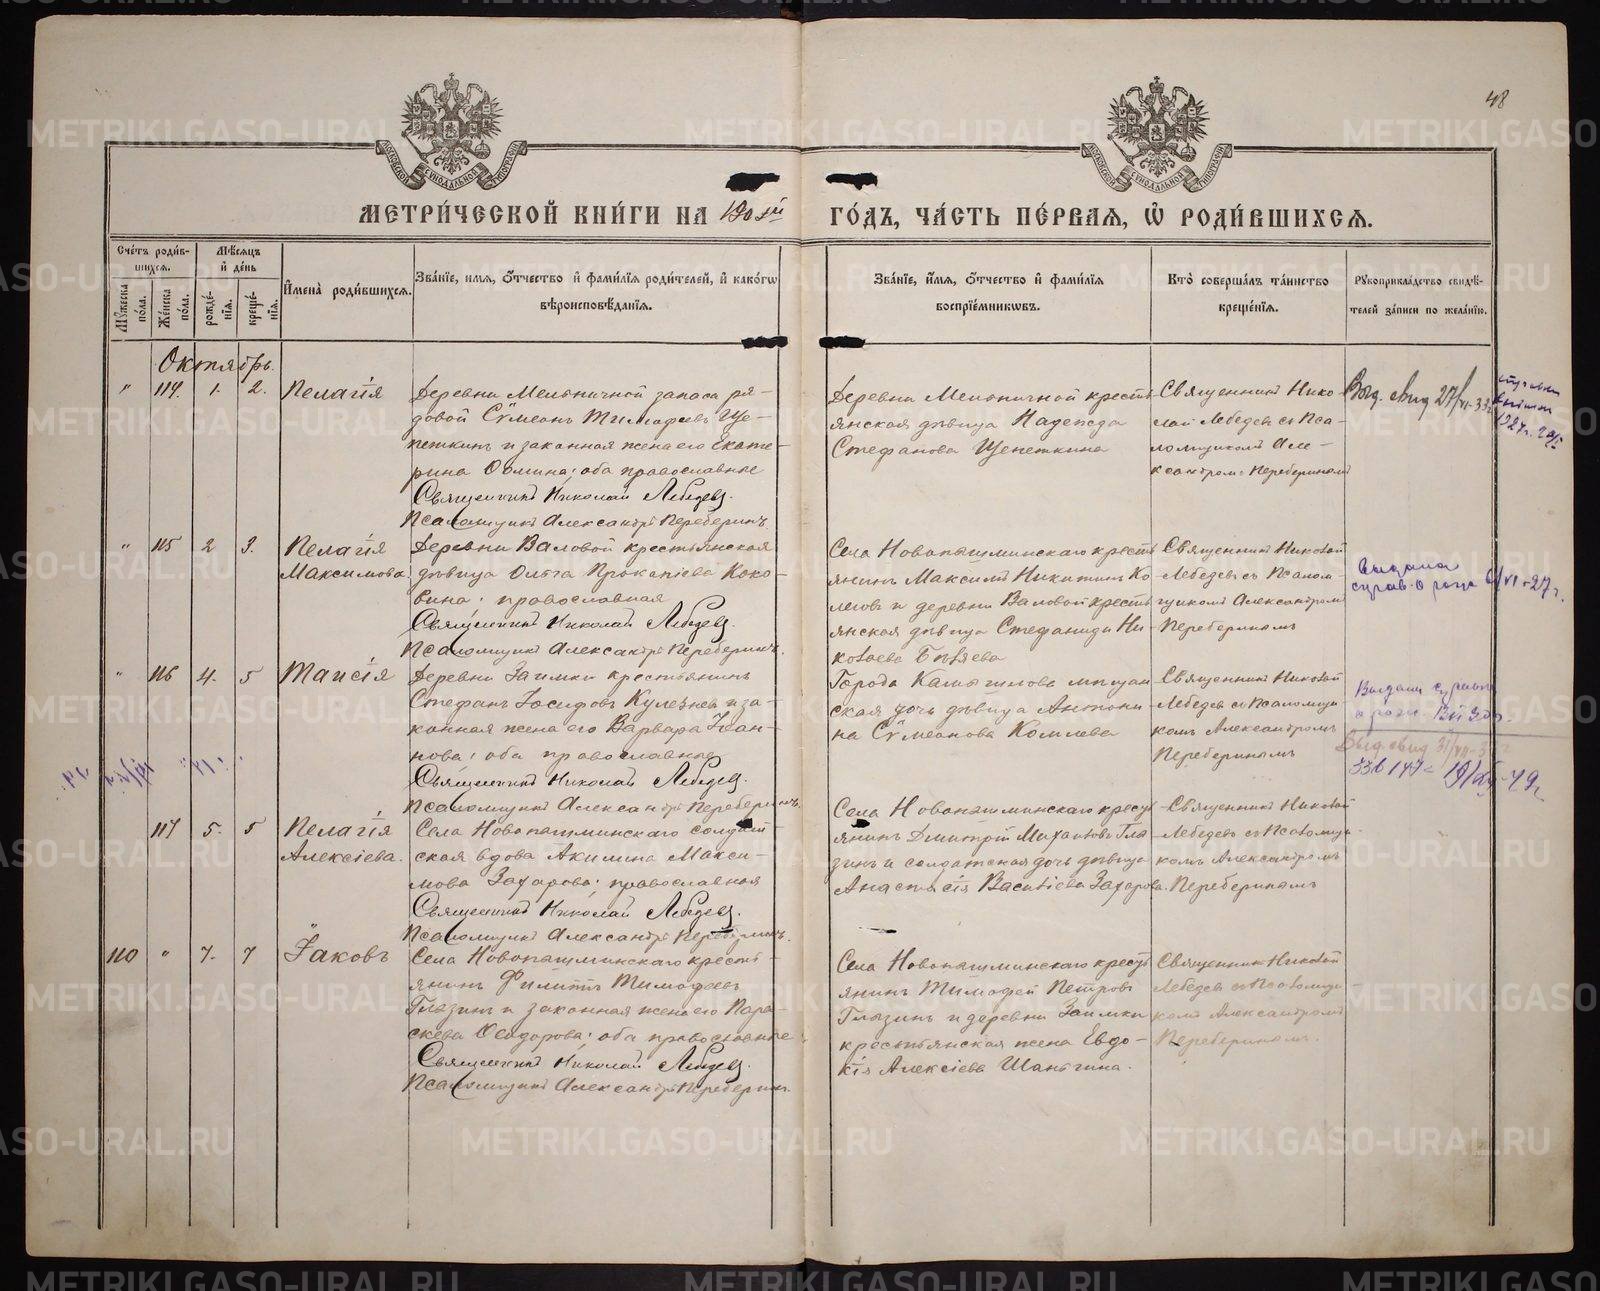 48
МОСКОВСКОЙ СѴНОДАЛЬНОЙ ТИПОГРАФІИ
МОСКОВСКОЙ СѴНОДАЛЬНОЙ ТИПОГРАФІИ
МЕТРИ́ЧЕСКОЙ КНИ́ГИ НА 190 й ГО́ДЪ, ЧА́СТЬ ПЕ́РВАѦ, Ѡ҆ РОДИ́ВШИХСѦ.
Сче́тъ роди́вшихсѧ.
Мѣ́сѧцъ и҆ де́нь
Мꙋ́жеска по́ла.
Же́нска по́ла.
рожде́нїѧ.
креще́нїѧ.
И҆мена̀ роди́вшихсѧ.
Зва́нїе, и҆мѧ, ѻ҆́тчество и҆ фами́лїѧ роди́телей, и҆ како́гѡ
вѣроисповѣ́данїѧ.
Зва́нїе, и҆́мѧ, ѻ҆́тчество и҆ фами́лїѧ
воспрїе́мникѡвъ.
Кто̀ соверша́лъ та́инство
креще́нїѧ.
Рꙋкоприкла́дство свидѣ́телей за́писи по жела́нїю.
Октябрь.
" 114. 1. 2. Пелагія
Деревни Мельничной запаса ря-
довой Сѵмеонъ Тимофеевъ Ще-
петкинъ и законная жена его Екате-
рина Ѳомина; оба православные
Священникъ Николай Лебедевъ.
Псаломщикъ Александръ Переберинъ.
Деревни Мельничной кресть
янская дѣвица Надежда
Стефанова Щепеткина
Священникъ Нико-
лай Лебедевъ съ Пса-
ломщикомъ Але-
ксандромъ Переберинымъ
Выд. свид 27/VI-33г
" 115 2 3. Пелагія
Максимова
Деревни Валовой крестьянская
дѣвица Ольга Прокопіева Коко-
вина; православная
Священникъ Николай Лебедевъ.
Псаломщикъ Александръ Переберинъ.
Села Новопышминскаго кресть
янинъ Максимъ Никитинъ Ко
легов и деревни Валовой кресть
янская дѣвица Стефанида Ни-
колаева Бѣляева
Священникъ Николай
Лебедевъ съ Псалом-
щикомъ Александромъ
Переберинымъ
выдана
справ. о рожд 6/VI-27г.
" 116 4. 5 Таисія
Деревни Заимки крестьянинъ
Стефанъ Іосифовъ Кулезневъ и за-
конная жена его Варвара Іоан-
нова; оба православные
Священникъ Николай Лебедевъ.
Псаломщикъ Александръ Переберинъ.
Города Камышлова мѣщан
ская дочь дѣвица Антони
на Сѵмеонова Комлева
Священникъ Николай
Лебедевъ съ Псаломщи
комъ Александромъ
Переберинымъ
Выд. свид 31/VII-3
117 5. 5 Пелагія
Алексіева.
Села Новопышминскаго солдат-
ская вдова Акилина Макси-
мова Захарова; православная
Священникъ Николай Лебедевъ.
Псаломщикъ Александръ Переберинъ.
Села Новопышминскаго кресть
янинъ Дмитрій Михаиловъ Гла
зинъ и солдатская дочь дѣвица
Анастасія Василіева Захарова.
Священникъ Николай
Лебедевъ съ Псаломщи
комъ Александромъ
Переберинымъ
110 " 7. 7 Іаковъ
Села Новопышминскаго кресть-
янинъ Филиппъ Тимофеевъ
Глазинъ и законная жена его Пара-
скева Ѳеодорова; оба православные
Священникъ Николай Лебедевъ.
Псаломщикъ Александръ Переберинъ.
Села Новопышминскаго кресть
янинъ Тимофей Петровъ
Глазинъ и деревни Заимки
крестьянская жена Евдо-
кія Алексіева Шаньгина.
Священникъ Николай
Лебедевъ съ Псаломщи-
комъ Александромъ
Переберинымъ.
METRIKI.GASO-URAL.RU